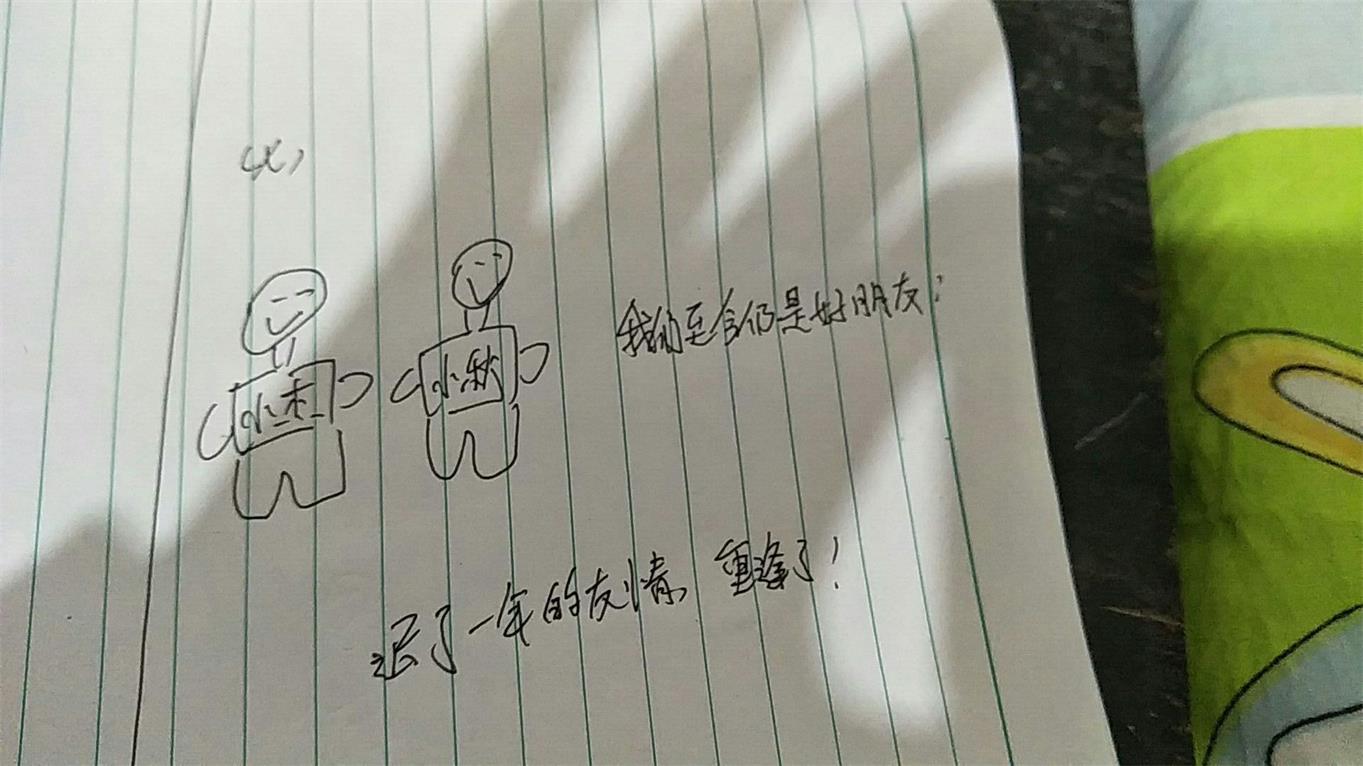 小秋
我们至今仍是好朋友:
迟了一年的友情 重逢了!